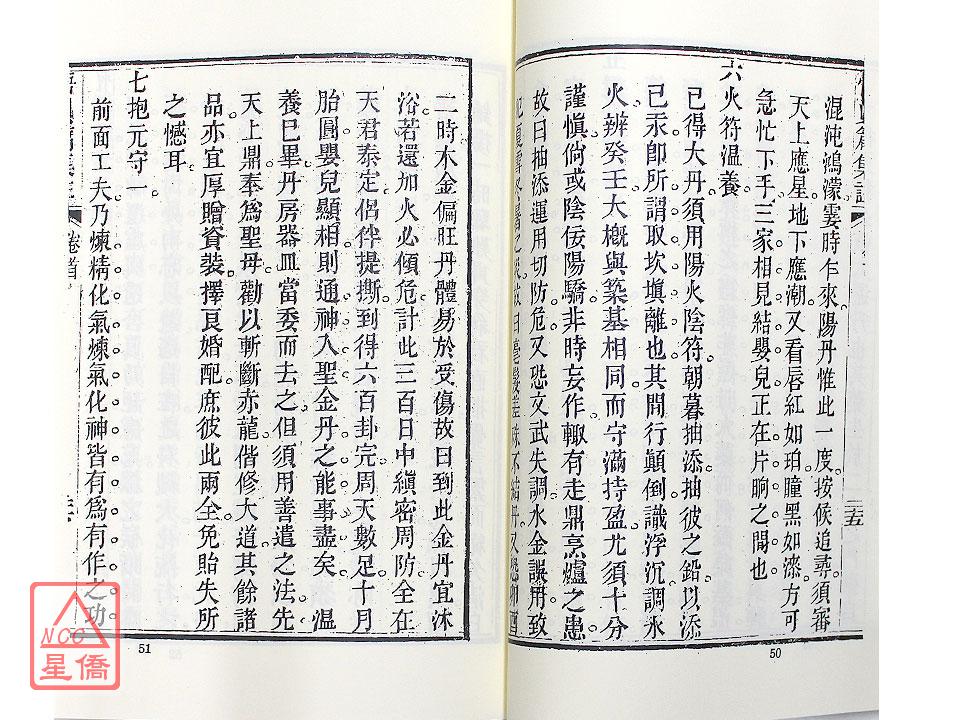 混沌鴻濛霎時乍來陽丹惟此一度按候追尋須審
天上應星地下應潮又看唇紅如珀瞳黑如漆方可
急忙下手三家相見結嬰兒正在片晌之間也
六火符溫養
已得大丹須用陽火陰符朝暮抽添抽彼之鉛以添
已汞卽所謂取坎塡離也其間行顛倒識浮沉調水
火辨癸壬大槪與築基相同而守滿持盈尤須十分
謹慎倘或陰佞陽驕非時妄作輙有走鼎烹爐之患
故曰抽添運用切防危又恐文武失調水金誤用致
曰毫髮差殊不結丹又恐卯酉
五
50
二時木金偏旺丹體易於受傷故曰到此金丹宜沐
浴若還加火必傾危計此三百日中縝密周防全在
天君泰定侶伴提撕到得六百卦完周天數足十月
胎圓嬰兒顯相則通神入聖金丹之能事盡矣 溫
養巳畢丹房器皿當委而去之但須用善遣之法先
天上鼎奉爲聖母勸以斬斷赤龍偕修大道其餘諸
品亦宜厚贈資裝擇良婚配庶彼此兩全免貽失所
之憾耳
七抱元守一
前面工夫乃煉精化氣煉氣化神皆有爲有作之功
卷首
51
NCC
星僑